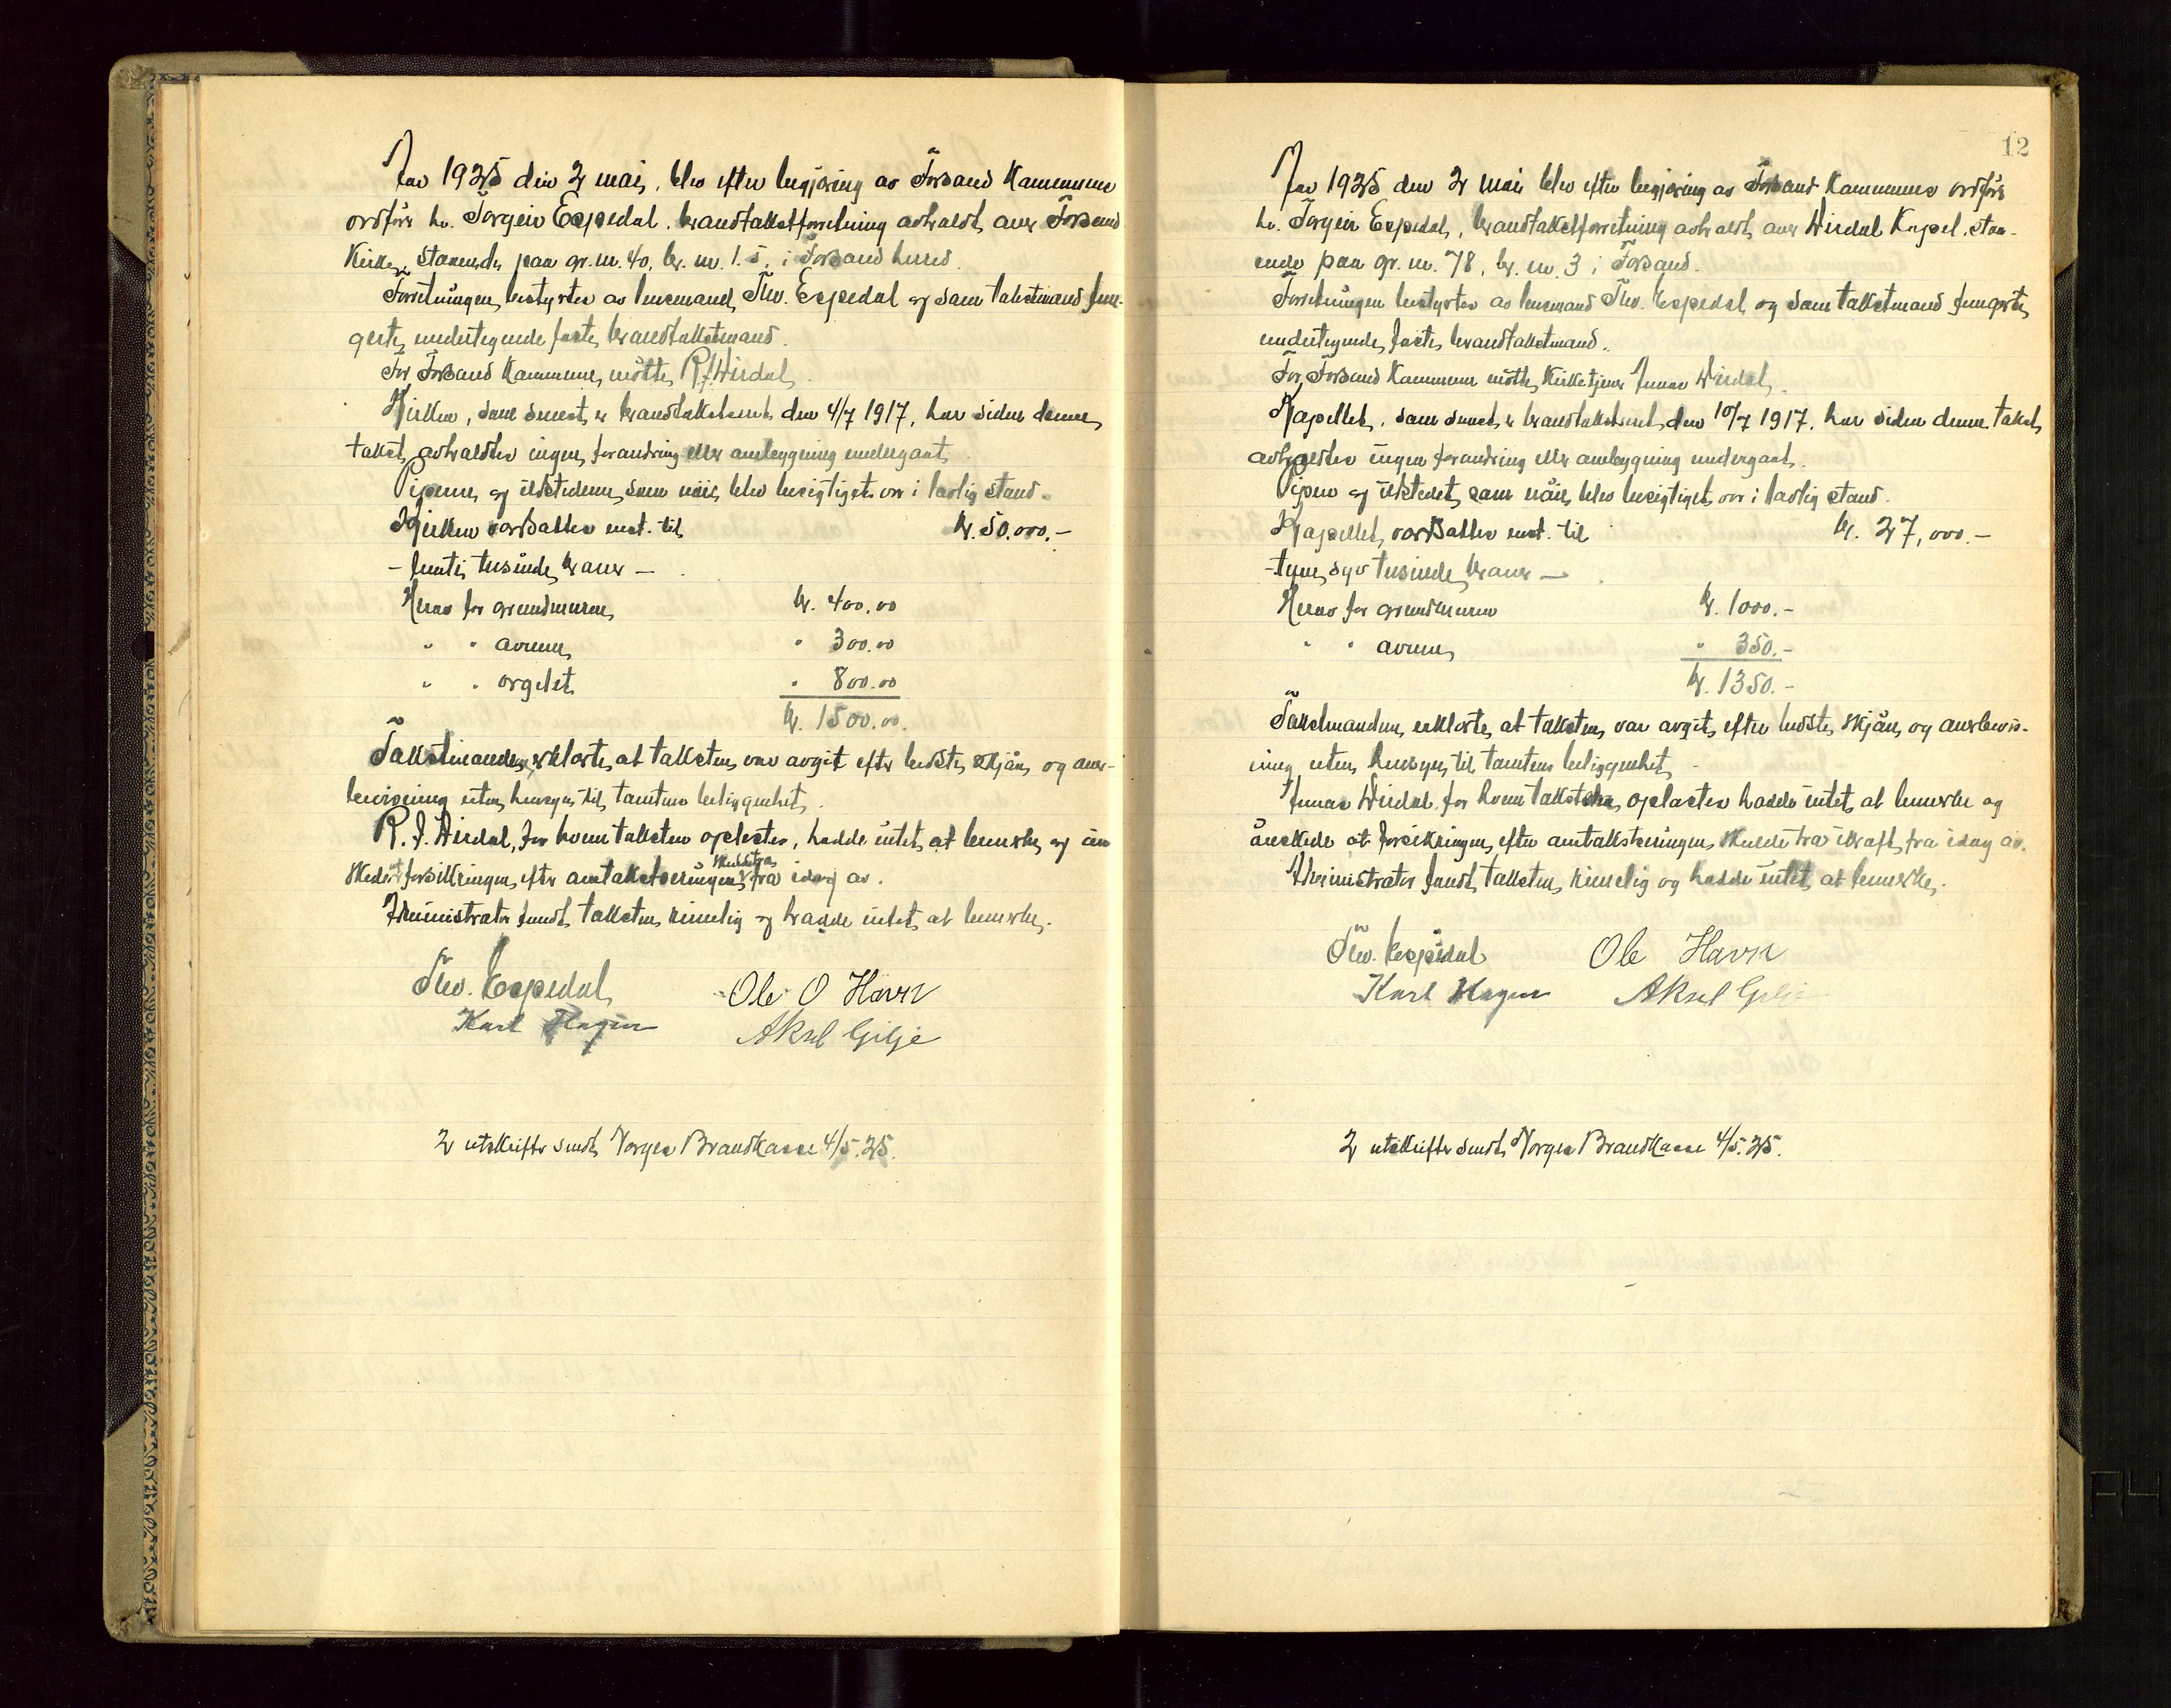 Aar 1925 den 2 mai, blev efter begjæring av Forsand Kommune
ordfører hr. Torgeir Espedal, brandtakstforretning avholdt over Forsand
Kirke, staaende paa gr. nr. 40, br. nr. 1.5. i Forsand herred.
Forretningen bestyrtes av lensmand Thv. Espedal og som takstmænd fun-
gerte undertegnede faste brandtakstmænd.
For Forsand Kommune møtte R. J. Hirdal.
Kirken, som senest er brandtakstert den 4/7 1917, har siden denne
takst avholdtes ingen forandring eller ombygning undergaat.
Piperne og ildstederne, som nøie blev besigtiget var i lovlig stand.
Kirken værdsattes enst. til kr. 50.000.-
- femti tusinde kroner -
Herav for grundmuren kr. 400.00
" " ovnene " 300.00
" " orgelet " 800.00
kr. 1500.00
Takstmændene erklærte, at taksten var avgit efter bedste skjøn og over-
bevisning uten hensyn til tomtens beliggenhet.
R. J. Hirdal, for hvem taksten oplæstes, hadde intet at bemerke og øn
skede at forsikringen efter omtakseringen skulde træ fra idag av.
Administrator fandt taksten rimelig og hadde intet at bemerke.
Thv. Espedal Ole O Havn
Karl Hagen Aksel Gilje
2 utskrifter sendt Norges Brandkasse 4/5.25.
12
Aar 1925 den 2 mai blev efter begjæring av Forsand Kommunes ordfører
hr. Torgeir Espedal, brandtakstforretning avholdt over Hirdal Kapel, staa-
ende paa gr. nr. 78, br. nr. 3 i Forsand.
Forretningen bestyrtes av lensmand Thv. Espedal og som takstmænd fungerte
undertegnede faste brandtakstmænd.
For Forsand Kommune møtte Kirketjener Hirdal.
Kapellet, som senest er brandtakstert den 10/7 1917, har siden denne takst
avholdtes ingen forandring eller ombygning undergaat.
Pipen og ildstedet, som nøie blev besigtiget var i lovlig stand.
Kapellet værdsattes enst. til kr. 27,000.-
- tyve syv tusinde kroner -
Herav for grundmuren kr. 1000.-
" " ovnene " 350.-
kr. 1350.-
Takstmændene erklærte, at taksten var avgit efter bedste skjøn og overbevis-
ning uten hensyn til tomtens beliggenhet.
Hirdal, for hvem taksten oplæstes hadde intet at bemerke og
ønskede at forsikringen efter omtakseringen skulde træ ikraft fra idag av.
Administrator fandt taksten rimelig og hadde intet at bemerke.
Thv. Espedal Ole Havn
Karl Hagen Aksel Gilje
2 utskrifter sendt Norges Brandkasse 4/5.25.